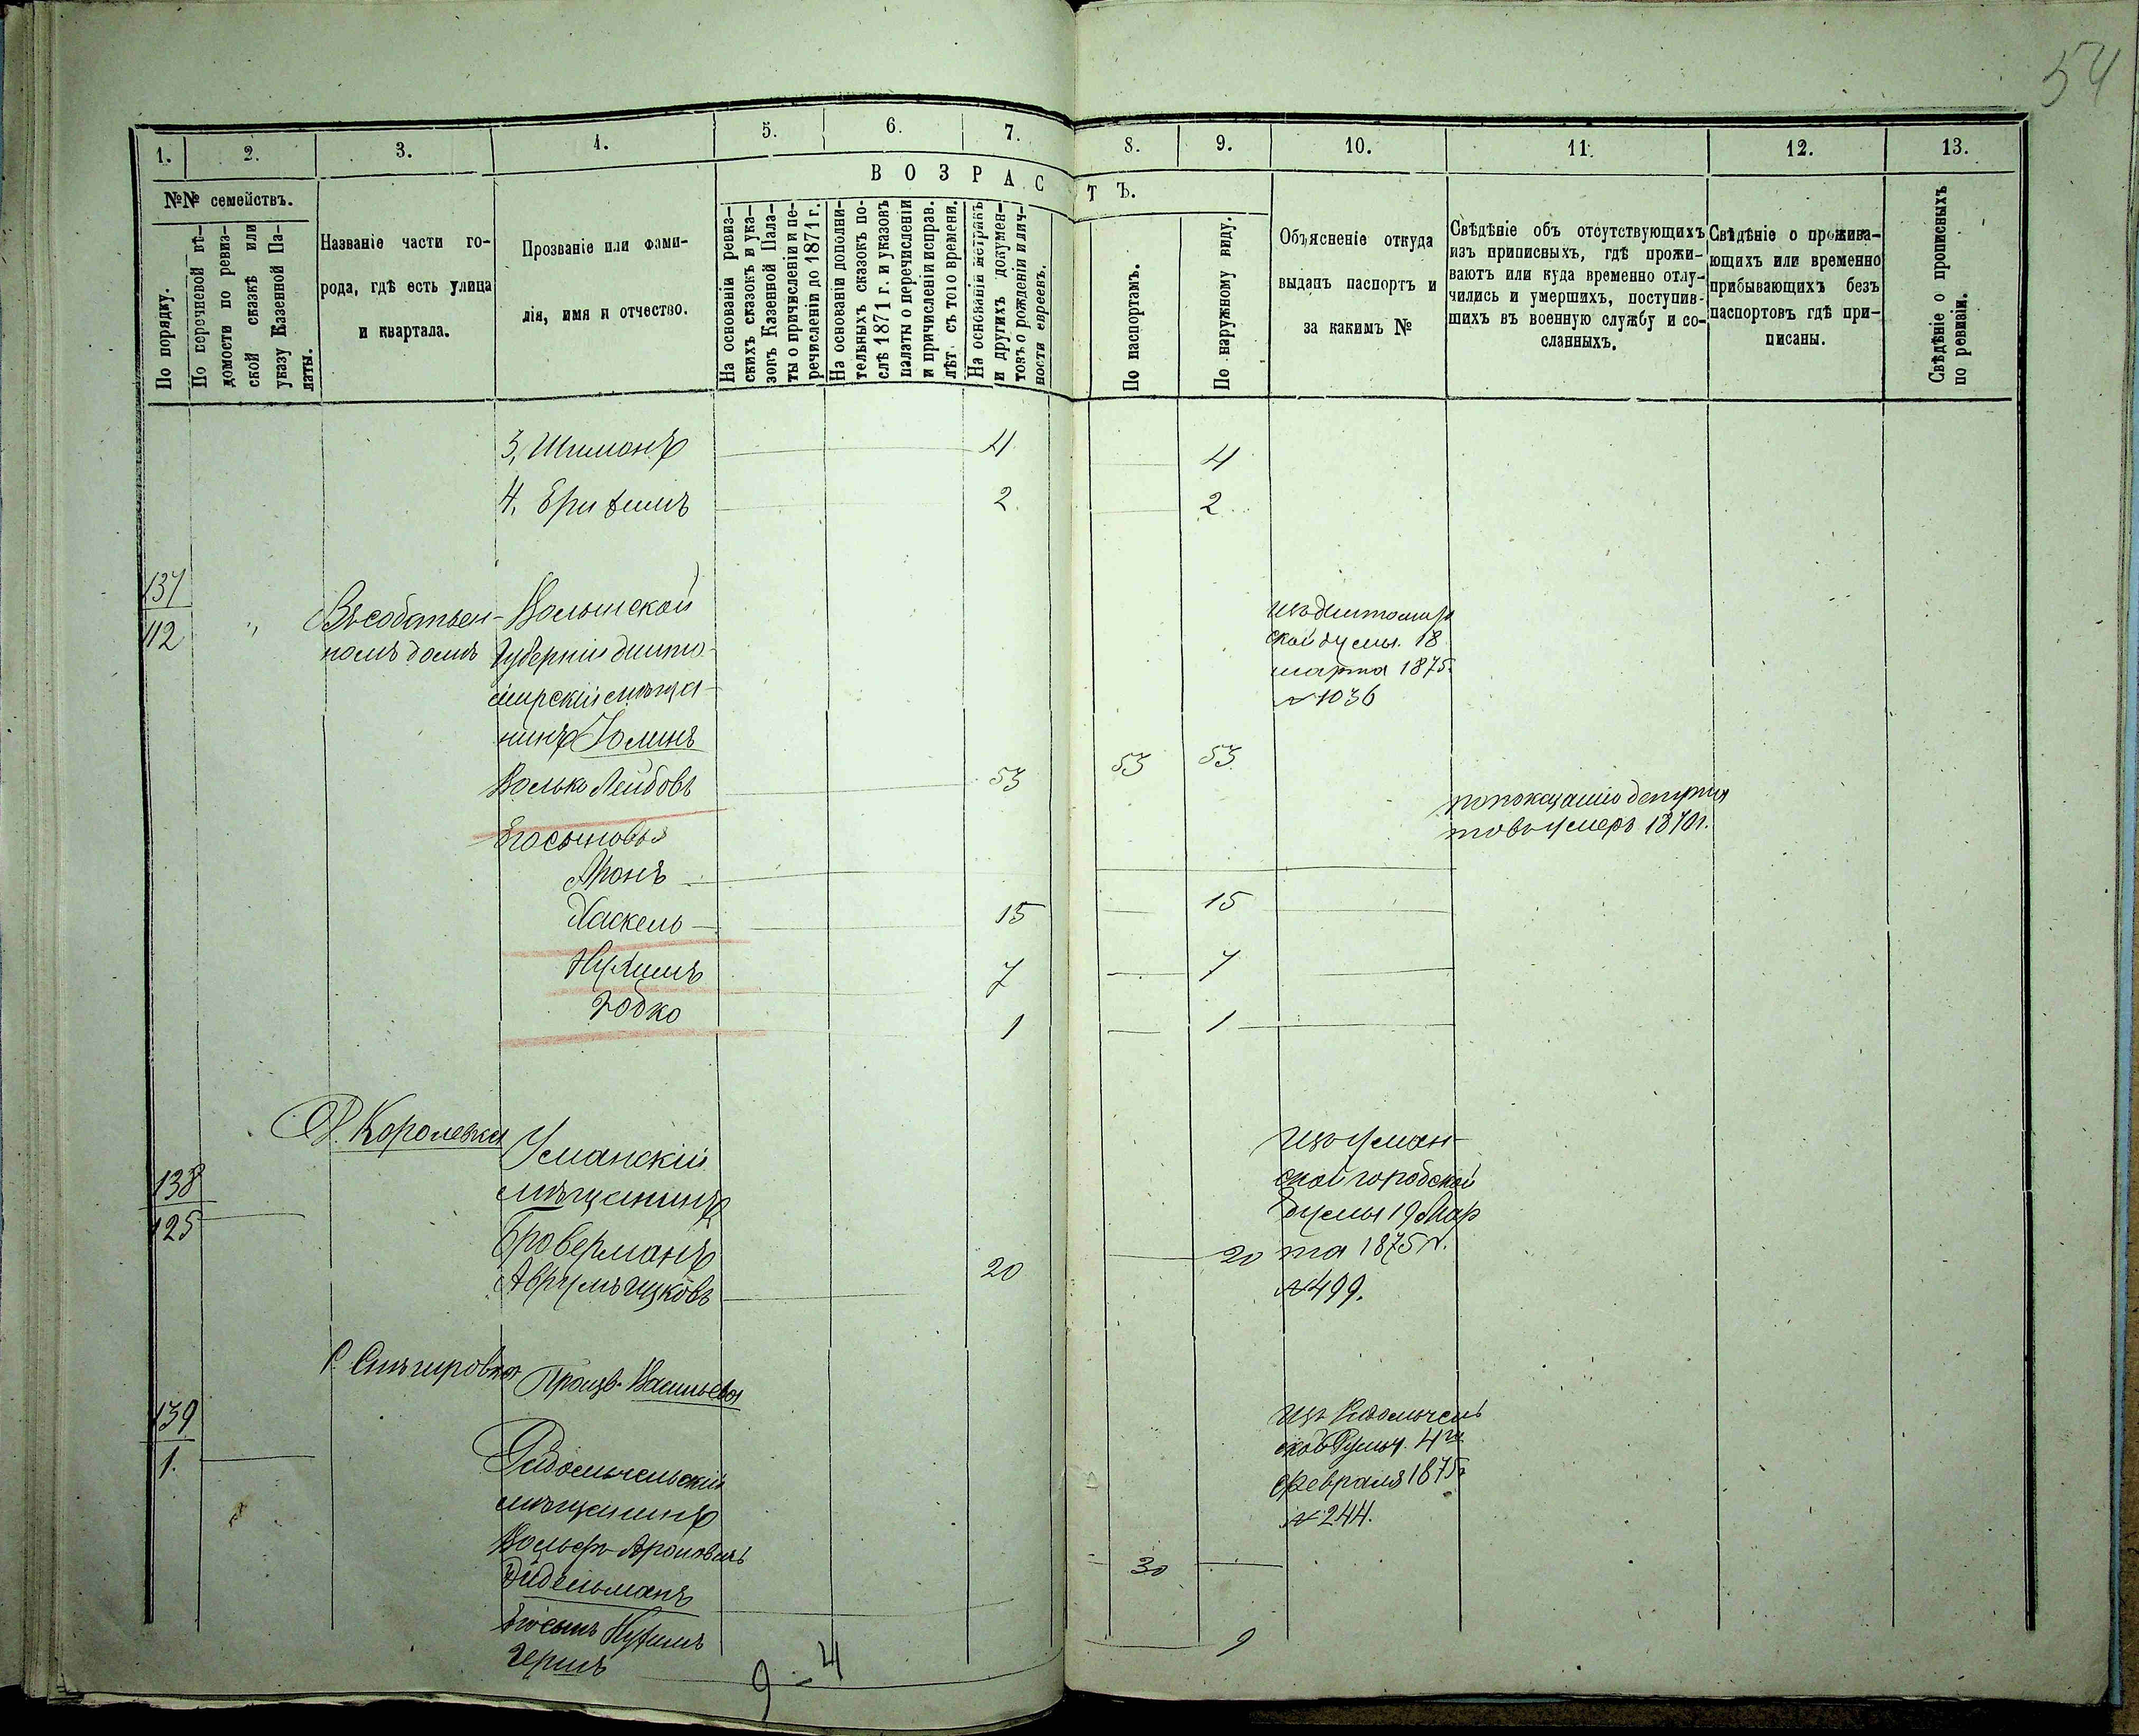 54
1. 2. 3. 4. 5. 6. 7. 8. 9. 10. 11. 12. 13.
№№ семействъ.
По порядку.
По перечневой вѣ-
домости по ревиз-
ской сказкѣ или
указу Казенной Па-
латы.
Названіе части го-
рода, гдѣ есть улица
и квартала.
Прозваніе или фами-
лія, имя и отчество.
ВОЗРАСТЪ.
На основаніи ревиз-
скихъ сказокъ и ука-
зокъ Казенной Пала-
ты о причисленіи и пе-
речисленіи до 1871 г.
На основаніи дополни-
тельныхъ сказокъ по-
слѣ 1871 г. и указовъ
палаты о перечисленіи
и причисленіи исправ.
лѣт. съ того времени.
На основаніи метрикъ
и другихъ докумен-
товъ о рожденіи и лич-
ности евреевъ.
По паспортамъ.
По наружному виду.
Объясненіе откуда
выданъ паспортъ и
за какимъ №
Свѣдѣніе объ отсутствующихъ
изъ приписныхъ, гдѣ прожи-
ваютъ или куда временно отлу-
чились и умершихъ, поступив-
шихъ въ военную службу и со-
сланныхъ.
Свѣдѣніе о прожива-
ющихъ или временно
прибывающихъ безъ
паспортовъ гдѣ при-
писаны.
Свѣдѣніе о прописныхъ
по ревизіи.
3, Шимонъ 4 4
4. Ерихимъ 2 2
137
112 "
Въ собствен-
номъ домѣ
Волынской
Губерніи Жито-
мирскій мѣща-
нинъ Юлинъ
Волько Лейбовъ 53 53 53
изъ Житомир
ской думы. 18
марта 1875.
№ 1036
Его сыновья
Аронъ
по показанію депута
товъ умеръ 1870 г.
Хаскель 15 15
Нухимъ 7 7
Іодко 1 1
Д. Королевка
138
125
Уманскій
мѣщанинъ
Броверманъ
Аврумъ Ицковъ 20 20
Изъ Уман
ской городской
думы 19 Мар
та 1875 г.
№ 499.
С. Снѣгировка
Произв. Васильева
139
1.
Радомысельскій
мѣщанинъ
Вольфъ Ароновичъ
Эйдельманъ 30
Изъ Радомысель
ской Думы. 4го
февраля 1875 г.
№ 244.
Его сынъ Нухимъ
Гершъ 9
9 - 4